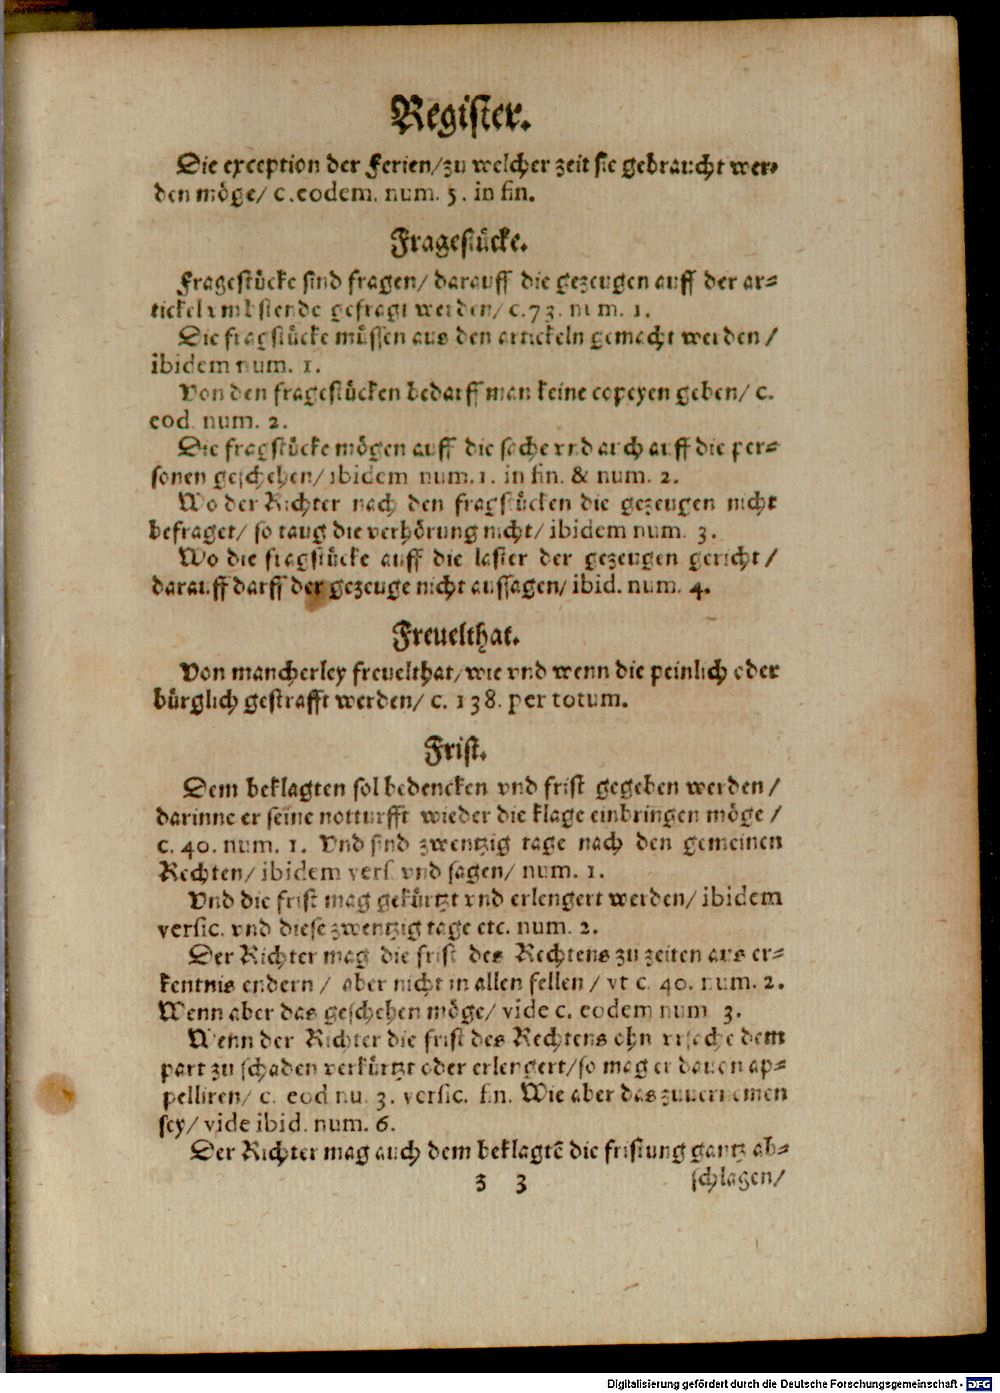 Register.
Die exception der Ferien/ zu welcher zeit sie gebraucht wer-
den möge/ c. eodem. num. 5. in fin.
Fragestücke.
Fragestücke sind fragen/ darauff die gezeugen auff der ar-
tickel vmbstende gefragt werden/ c. 73. num. 1.
Die fragstücke müssen aus den artickeln gemacht werden/
ibidem num. 1.
Von den fragestücken bedarff man keine copeyen geben/ c.
eod. num. 2.
Die fragstücke mögen auff die sache vnd auch auff die per-
sonen geschehen/ ibidem num. 1. in fin. & num. 2.
Wo der Richter nach den fragstücken die gezeugen nicht
befraget/ so taug die verhörung nicht/ ibidem num. 3.
Wo die fragstücke auff die laster der gezeugen gericht/
darauff darff der gezeuge nicht aussagen/ ibid. num. 4.
Freuelthat.
Von mancherley freuelthat/ wie vnd wenn die peinlich oder
bürglich gestrafft werden/ c. 138. per totum.
Frist.
Dem beklagten sol bedencken vnd frist gegeben werden/
darinne er seine notturfft wieder die klage einbringen möge/
c. 40. num. 1. Vnd sind zwentzig tage nach den gemeinen
Rechten/ ibidem vers. vnd sagen/ num. 1.
Vnd die frist mag gekürtzt vnd erlengert werden/ ibidem
versic. vnd diese zwentzig tage etc. num. 2.
Der Richter mag die frist des Rechtens zu zeiten aus er-
kentnis endern/ aber nicht in allen fellen/ vt c. 40. num. 2.
Wenn aber das geschehen möge/ vide c. eodem num. 3.
Wenn der Richter die frist des Rechtens ohn vrsache dem
part zu schaden verkürtzt oder erlengert/ so mag er dauon ap-
pelliren/ c. eod. nu. 3. versic. fin. Wie aber das zuuernemen
sey/ vide ibid. num. 6.
Der Richter mag auch dem beklagtē die fristung gantz ab-
Z 3 schlagen/
Digitalisierung gefördert durch die Deutsche Forschungsgemeinschaft - DFG